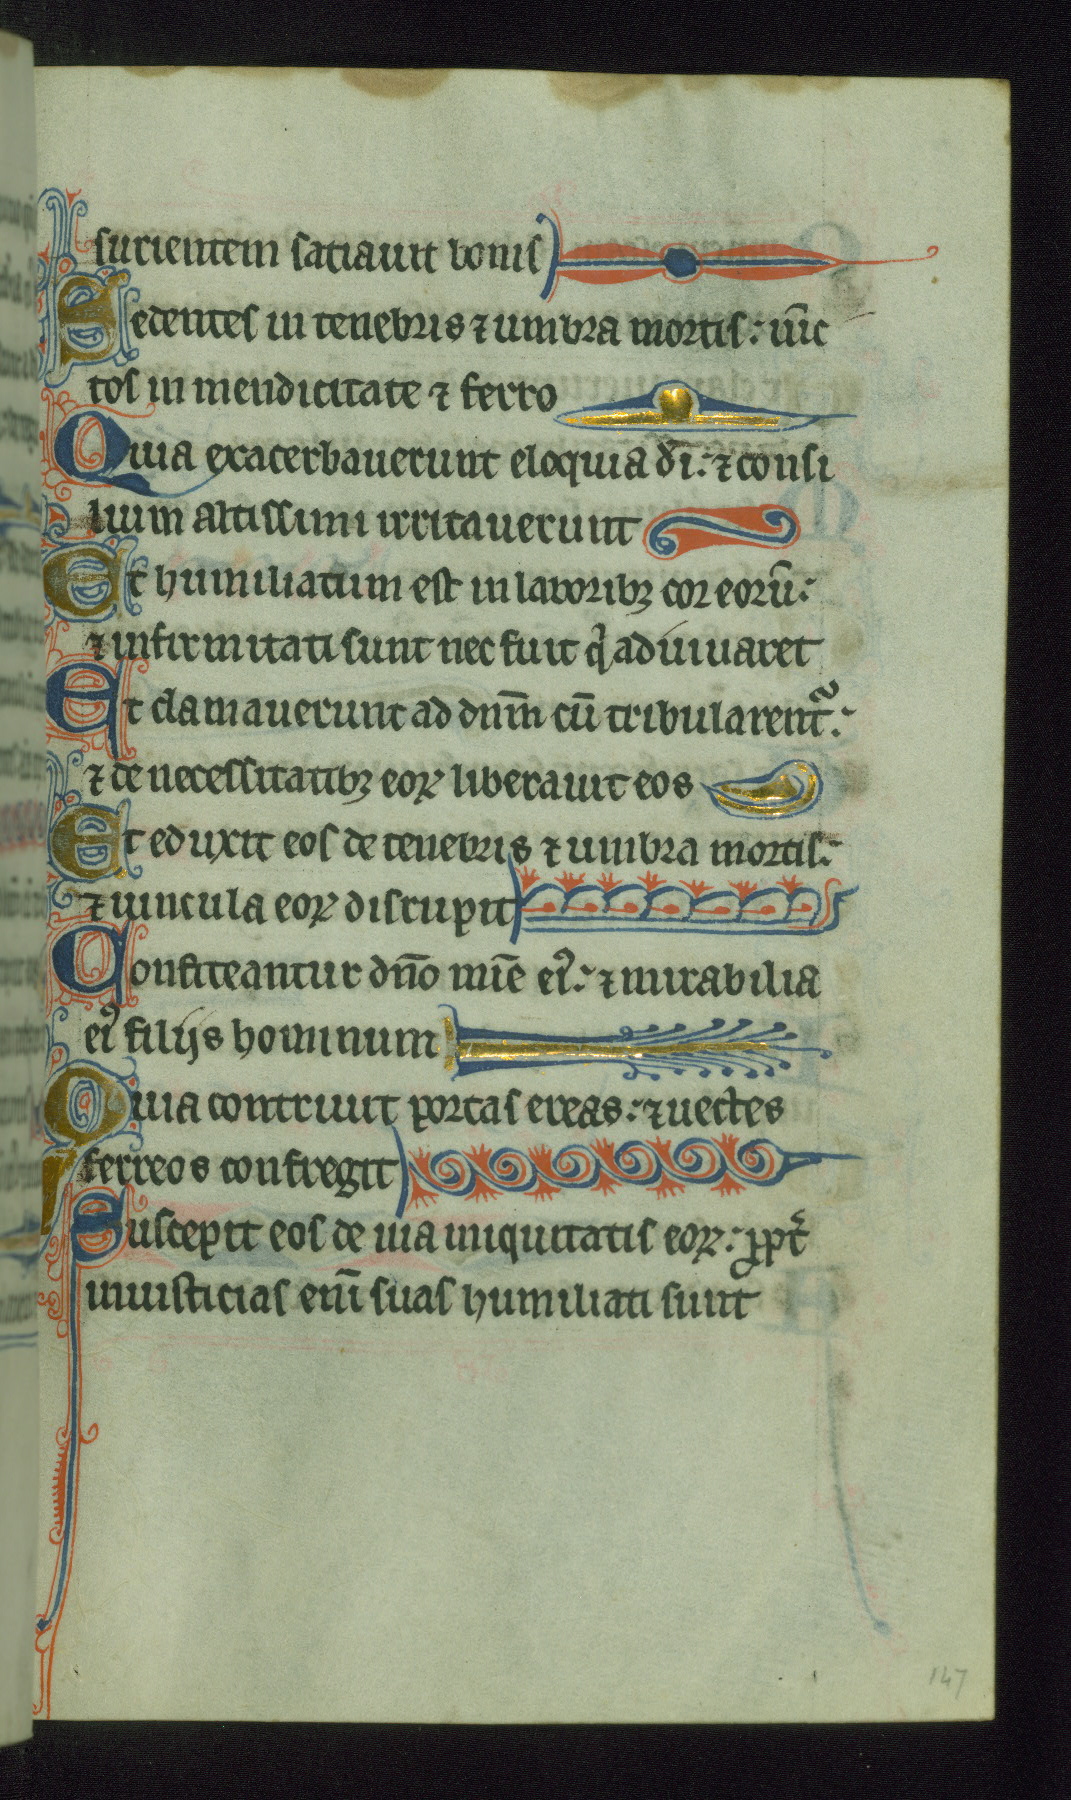 surientem satiauit bonis
Sedentes in tenebris ⁊ umbra mortis: uīc
tos in mendicitate ⁊ ferro
Quia exacerbauerunt eloquia dī: ⁊ consi
lium altissimi irritauerunt
Et humiliatum est in laboribꝫ cor eorū:
⁊ infirmitati sunt nec fuit q̇ adiuuaret
Et clamauerunt ad dn̄m cū tribularent᷑:
⁊ de necessitatibꝫ eoꝝ liberauit eos
Et eduxit eos de tenebris ⁊ umbra mortis:
⁊ uincula eoꝝ disrupit
Confiteantur dn̄o mīe eiꝰ: ⁊ mirabilia
eiꝰ filijs hominum
Quia contriuit portas ereas: ⁊ uectes
ferreos confregit
Suscepit eos de uia iniquitatis eoꝝ: ꝓpt̄
iniusticias enī suas humiliati sunt
147